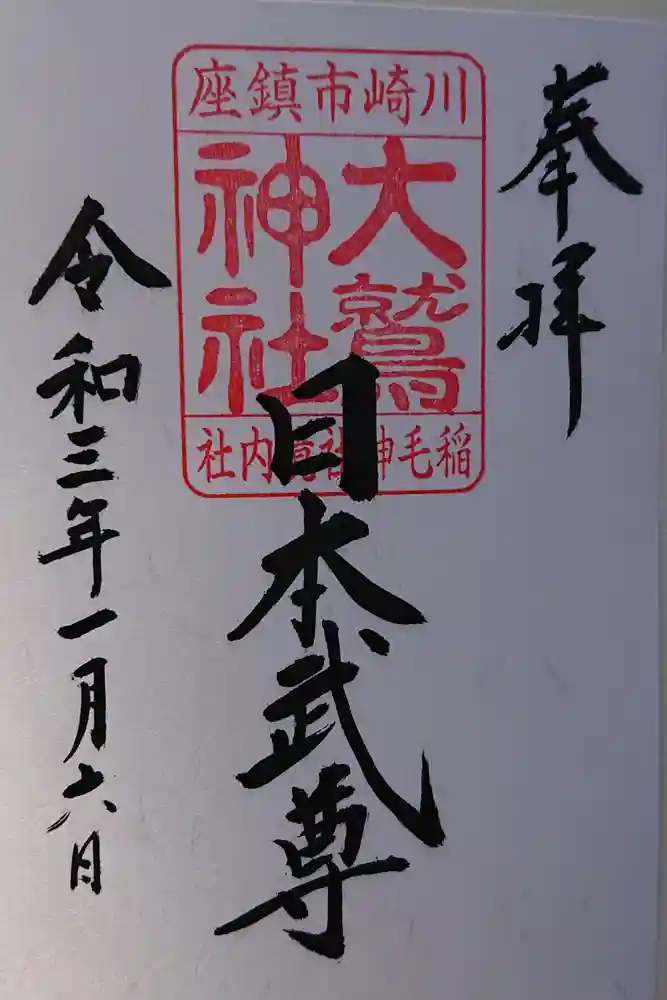 奉拝
川崎市鎮座
大鷲
神社
稲毛神社境内社
日本武尊
令和三年一月六日